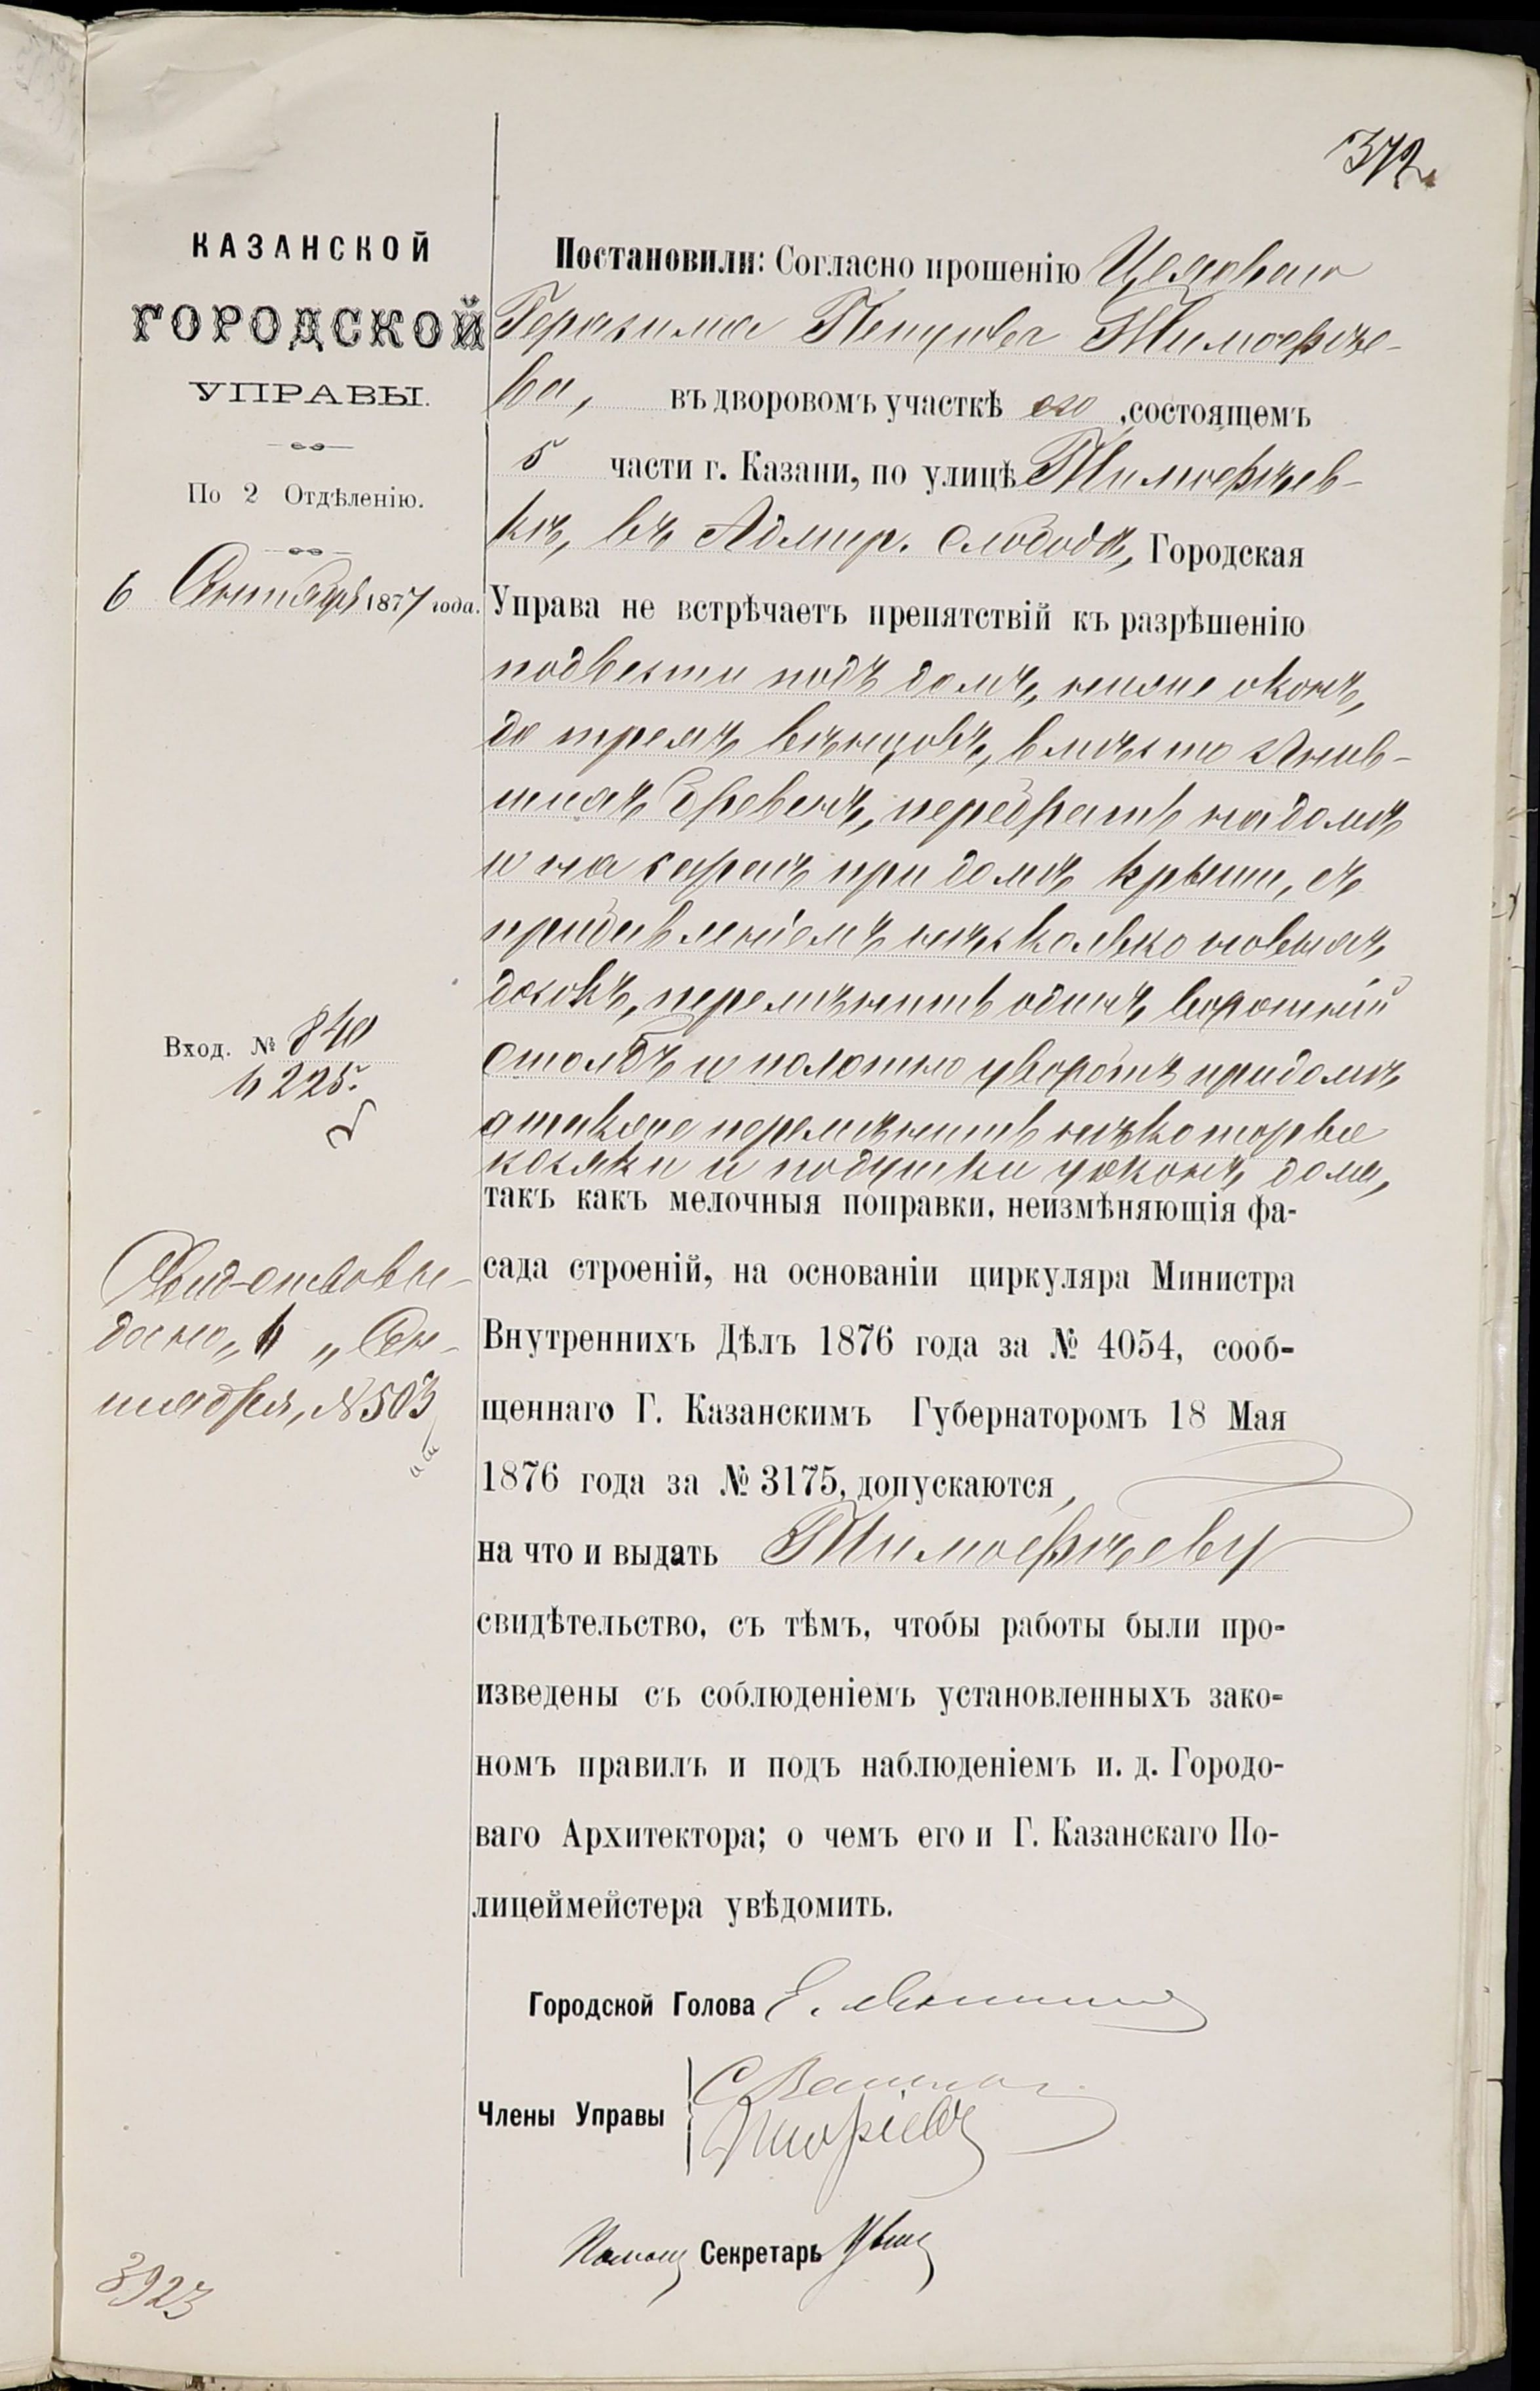 372.
КАЗАНСКОЙ
ГОРОДСКОЙ
УПРАВЫ.
По 2 Отдѣленію.
6 Сентября 1877 года.
Вход. № 840
6225.
Свид-ство вы-
дано „6„ Сен-
тября, № 503
3923
Постановили: Согласно прошенію Цеховаго
Герасима Тимофѣе-
ва, въ дворовомъ участкѣ его, состоящемъ
5 части г. Казани, по улицѣ Тимофѣев-
кѣ, въ Адмир. слободѣ, Городская
Управа не встрѣчаетъ препятствій къ разрѣшенію
подвести подъ домъ, ниже оконъ,
до трехъ вѣнцовъ, вмѣсто згнив-
шихъ бревенъ, перебрать на домѣ
и на сараѣ при домѣ крыши, съ
прибавленіемъ нѣсколько новыхъ
досокъ, перемѣнить одинъ воротный
столбъ и полотно у воротъ при домѣ
а также перемѣнить нѣкоторые
косяки и подушки у оконъ дома,
такъ какъ мелочныя поправки, неизмѣняющія фа-
сада строеній, на основаніи циркуляра Министра
Внутреннихъ Дѣлъ 1876 года за № 4054, сооб-
щеннаго Г. Казанскимъ Губернаторомъ 18 Мая
1876 года за № 3175, допускаются,
на что и выдать Тимофѣеву
свидѣтельство, съ тѣмъ, чтобы работы были про-
изведены съ соблюденіемъ установленныхъ зако-
номъ правилъ и подъ наблюденіемъ и. д. Городо-
ваго Архитектора; о чемъ его и Г. Казанскаго По-
лицеймейстера увѣдомить.
Городской Голова
Члены Управы
Помощ Секретарь